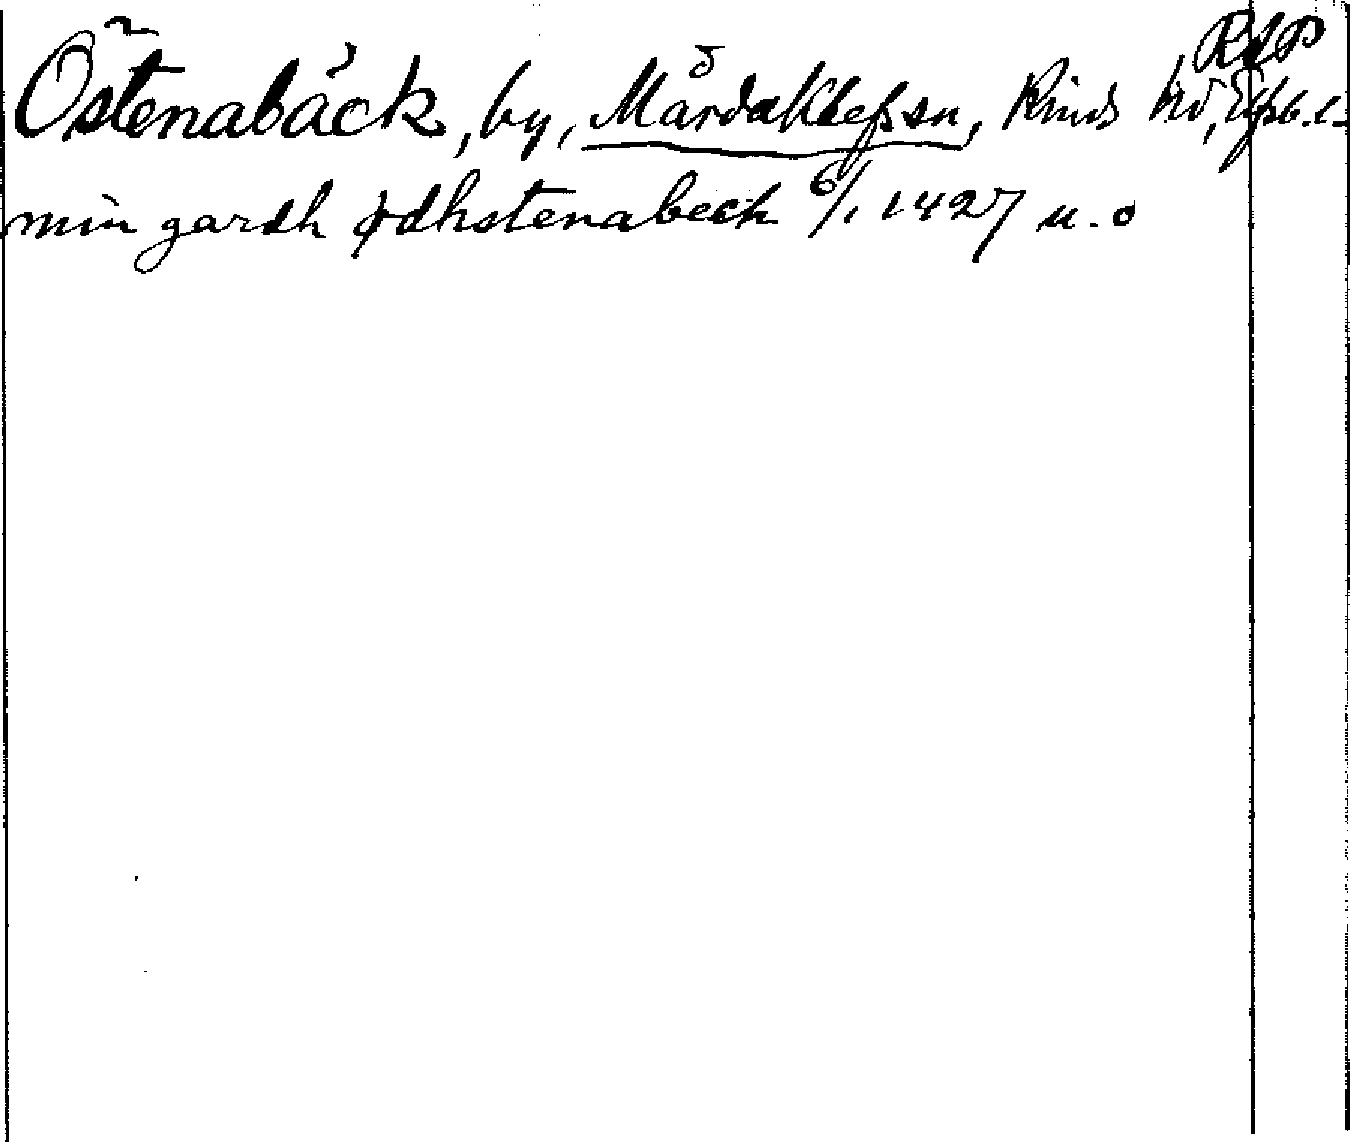 RAP
Östenabäck, by, Mårdaklefs sn, Kinds hd, Elfsb. l.
min gardh ødhstenabeck 6/1 1427 u. o